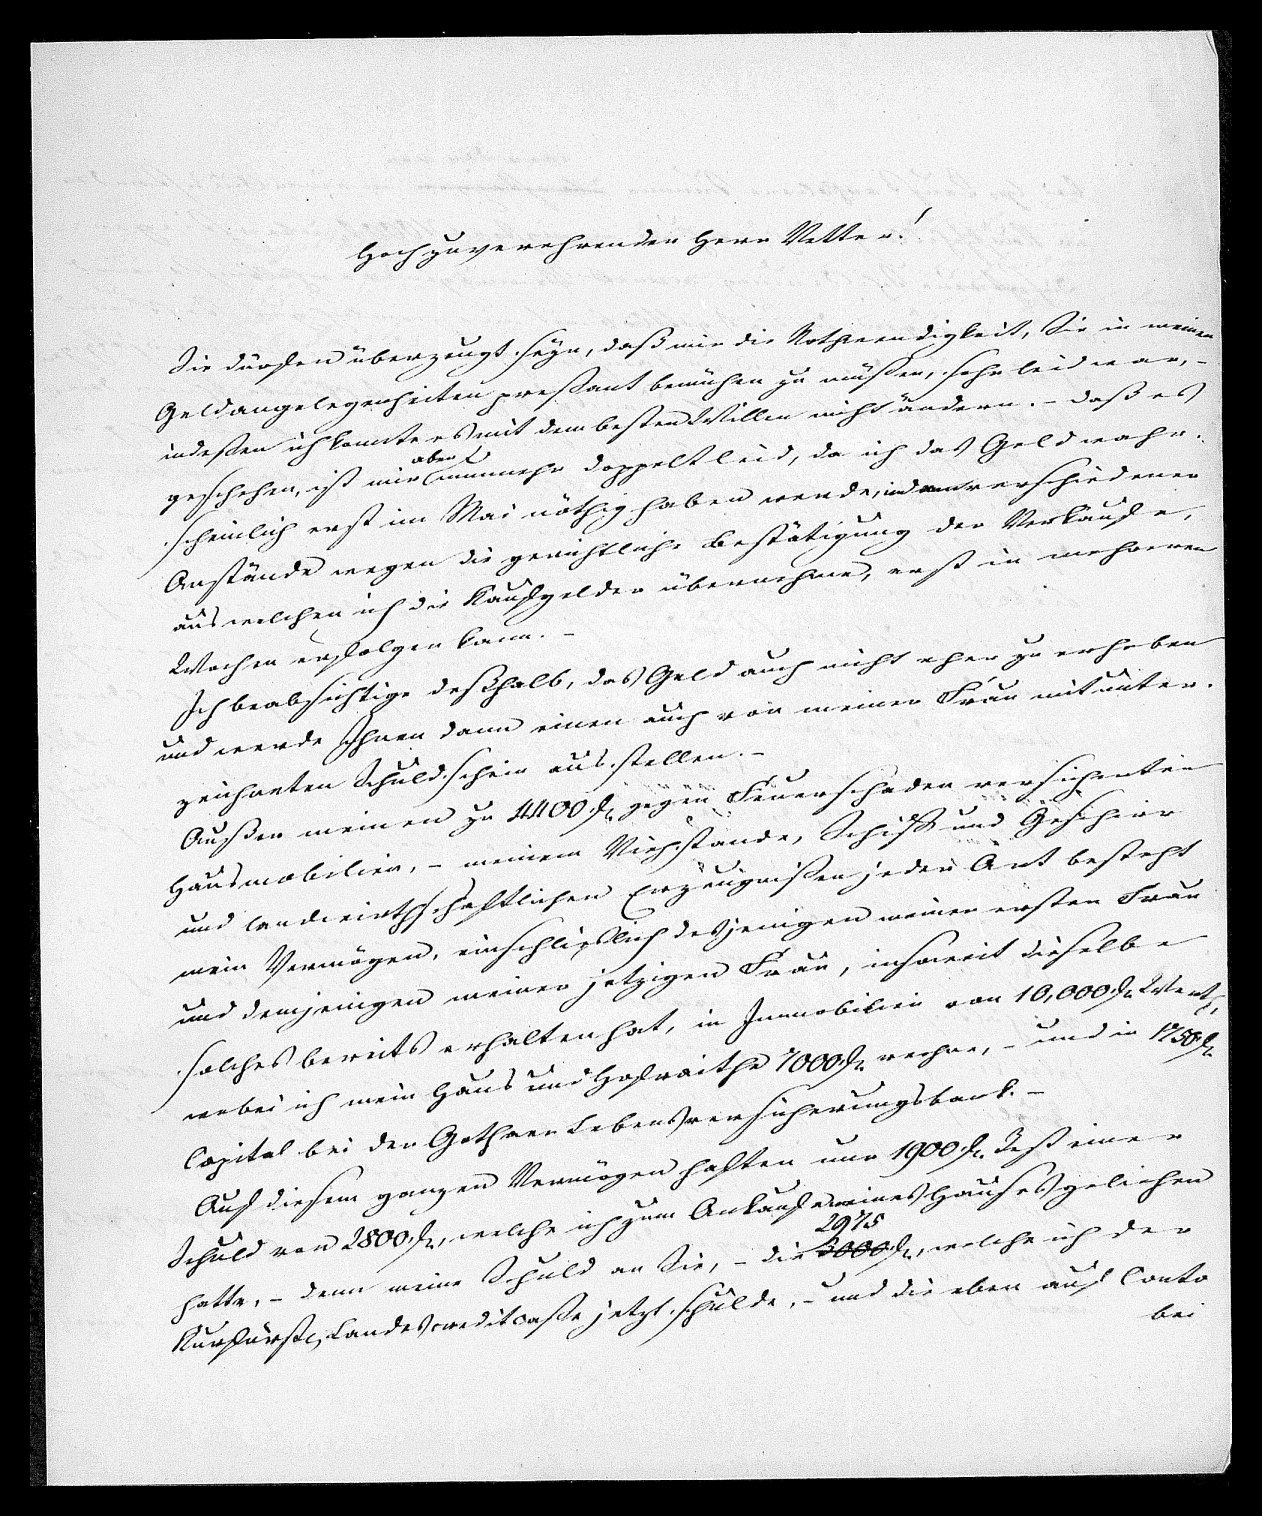 Hochzuverehrender Herr Vetter!
Sie dürfen überzeugt seyn, daß mir die Nothwendigkeit, Sie in meinen
Geldangelegenheiten pressant bemühen zu müssen, sehr leid war, –
indessen ich konnte es mit dem besten Willen nicht ändern. – daß es
geschehen, ist mir aber nunmehr doppelt leid, da ich das Geld wahr-
scheinlich erst im Mai nöthig haben werde, indem verschiedener
Anstände wegen die gerichtliche Bestätigung der Verkaufe,
aus welchen ich die Kaufgelder übernehme, erst in mehreren
Wochen erfolgen kann. –
Ich beabsichtige deßhalb, das Geld auch nicht eher zu erheben
und werde Ihnen dann einen auch von meiner Frau mit unter-
zeichneten Schuldschein ausstellen. –
Außer meinen zu 4400 f. gegen Feuerschaden versicherten
Hausmobilien, – meinem Viehstande, Schiff und Geschirr
und landwirthschaftlichen Erzeugnissen jeder Art besteht
mein Vermögen, einschlißlich desjenigen meiner ersten Frau
und demjenigen meiner jetzigen Frau, insoweit dieselbe
solches bereits erhalten hat, in Immobilien von 10,000 f. Werth,
wobei ich mein Haus und Hofraithe 7000 f. rechne, – und in 1750 f.
Capital bei der Gothaer Lebensversicherungsbank. –
Auf diesem ganzen Vermögen haften nur 1900 f. Rest einer
Schuld von 2800 f., welche ich zum Ankauf meines Hauses geliehen
hatte, – dann meine Schuld an Sie, – die 2975 3000 f., welche ich der
Kurfürstl. Landescreditcasse jetzt schulde, – und die eben auf Conto
bei